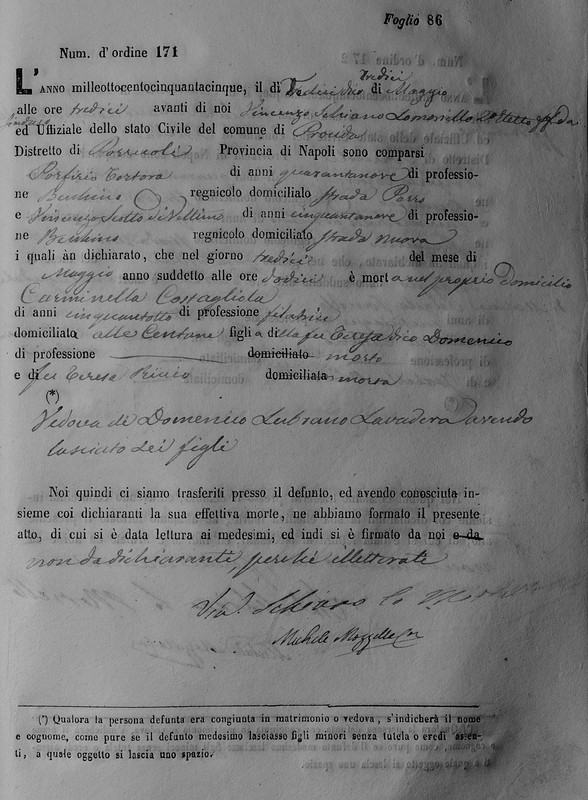 Foglio 86
Num. d'ordine 171
L'ANNO milleottocentocinquantacinque, il dì Tredici dico tredici di Maggio
alle ore tredici avanti di noi Vincenzo Schiano Lomoriello 2º Eletto
ed Uffiziale dello stato Civile del comune di Procida
Distretto di Pozzuoli Provincia di Napoli sono comparsi
Porfirio Tortora di anni quarantanove di professio-
ne Becchino regnicolo domiciliato strada
e Vincenzo Scotto di Vettimo di anni cinquantanove di professio-
ne Becchino regnicolo domiciliato strada nuova
i quali àn dichiarato, che nel giorno tredici del mese di
Maggio anno suddetto alle ore dodici è morta nel proprio Domicilio
Carminella Costagliola
di anni cinquantotto di professione filatrice
domiciliata alle Centane figlia di fu Teresa dico Domenico
di professione domiciliato morto
e di fu Teresa domiciliata morta
(*)
Vedova di Domenico Lubrano Lavadera avendo
lasciato sei figli
Noi quindi ci siamo trasferiti presso il defunto, ed avendo conosciuta in-
sieme coi dichiaranti la sua effettiva morte, ne abbiamo formato il presente
atto, di cui si è data lettura ai medesimi, ed indi si è firmato da noi e da
non da dichiaranti, perchè illetterati
Vinc. Schiano Lo
Michele
(*) Qualora la persona defunta era congiunta in matrimonio o vedova, s'indicherà il nome
e cognome, come pure se il defunto medesimo lasciasse figli minori senza tutela o eredi assen-
ti, a quale oggetto si lascia uno spazio.